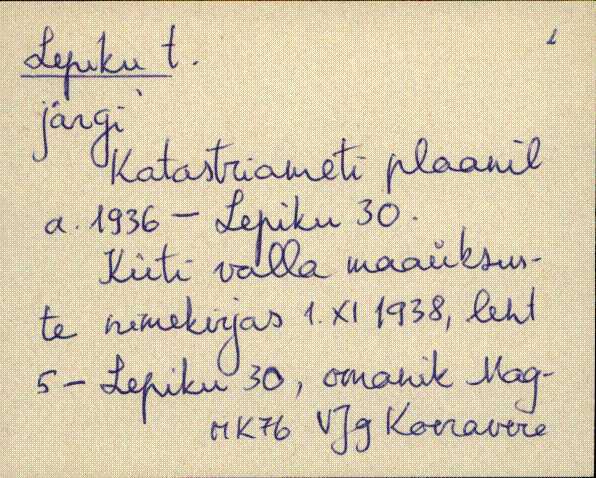 Lepiku t.
1
järgi
Katastriameti plaanil
a. 1936 – Lepiku 30.
Küti valla maaüksus-
te nimekirjas 1. XI 1938, leht
5 – Lepiku 30, omanik Mag-
MK76 VJg Koeravere